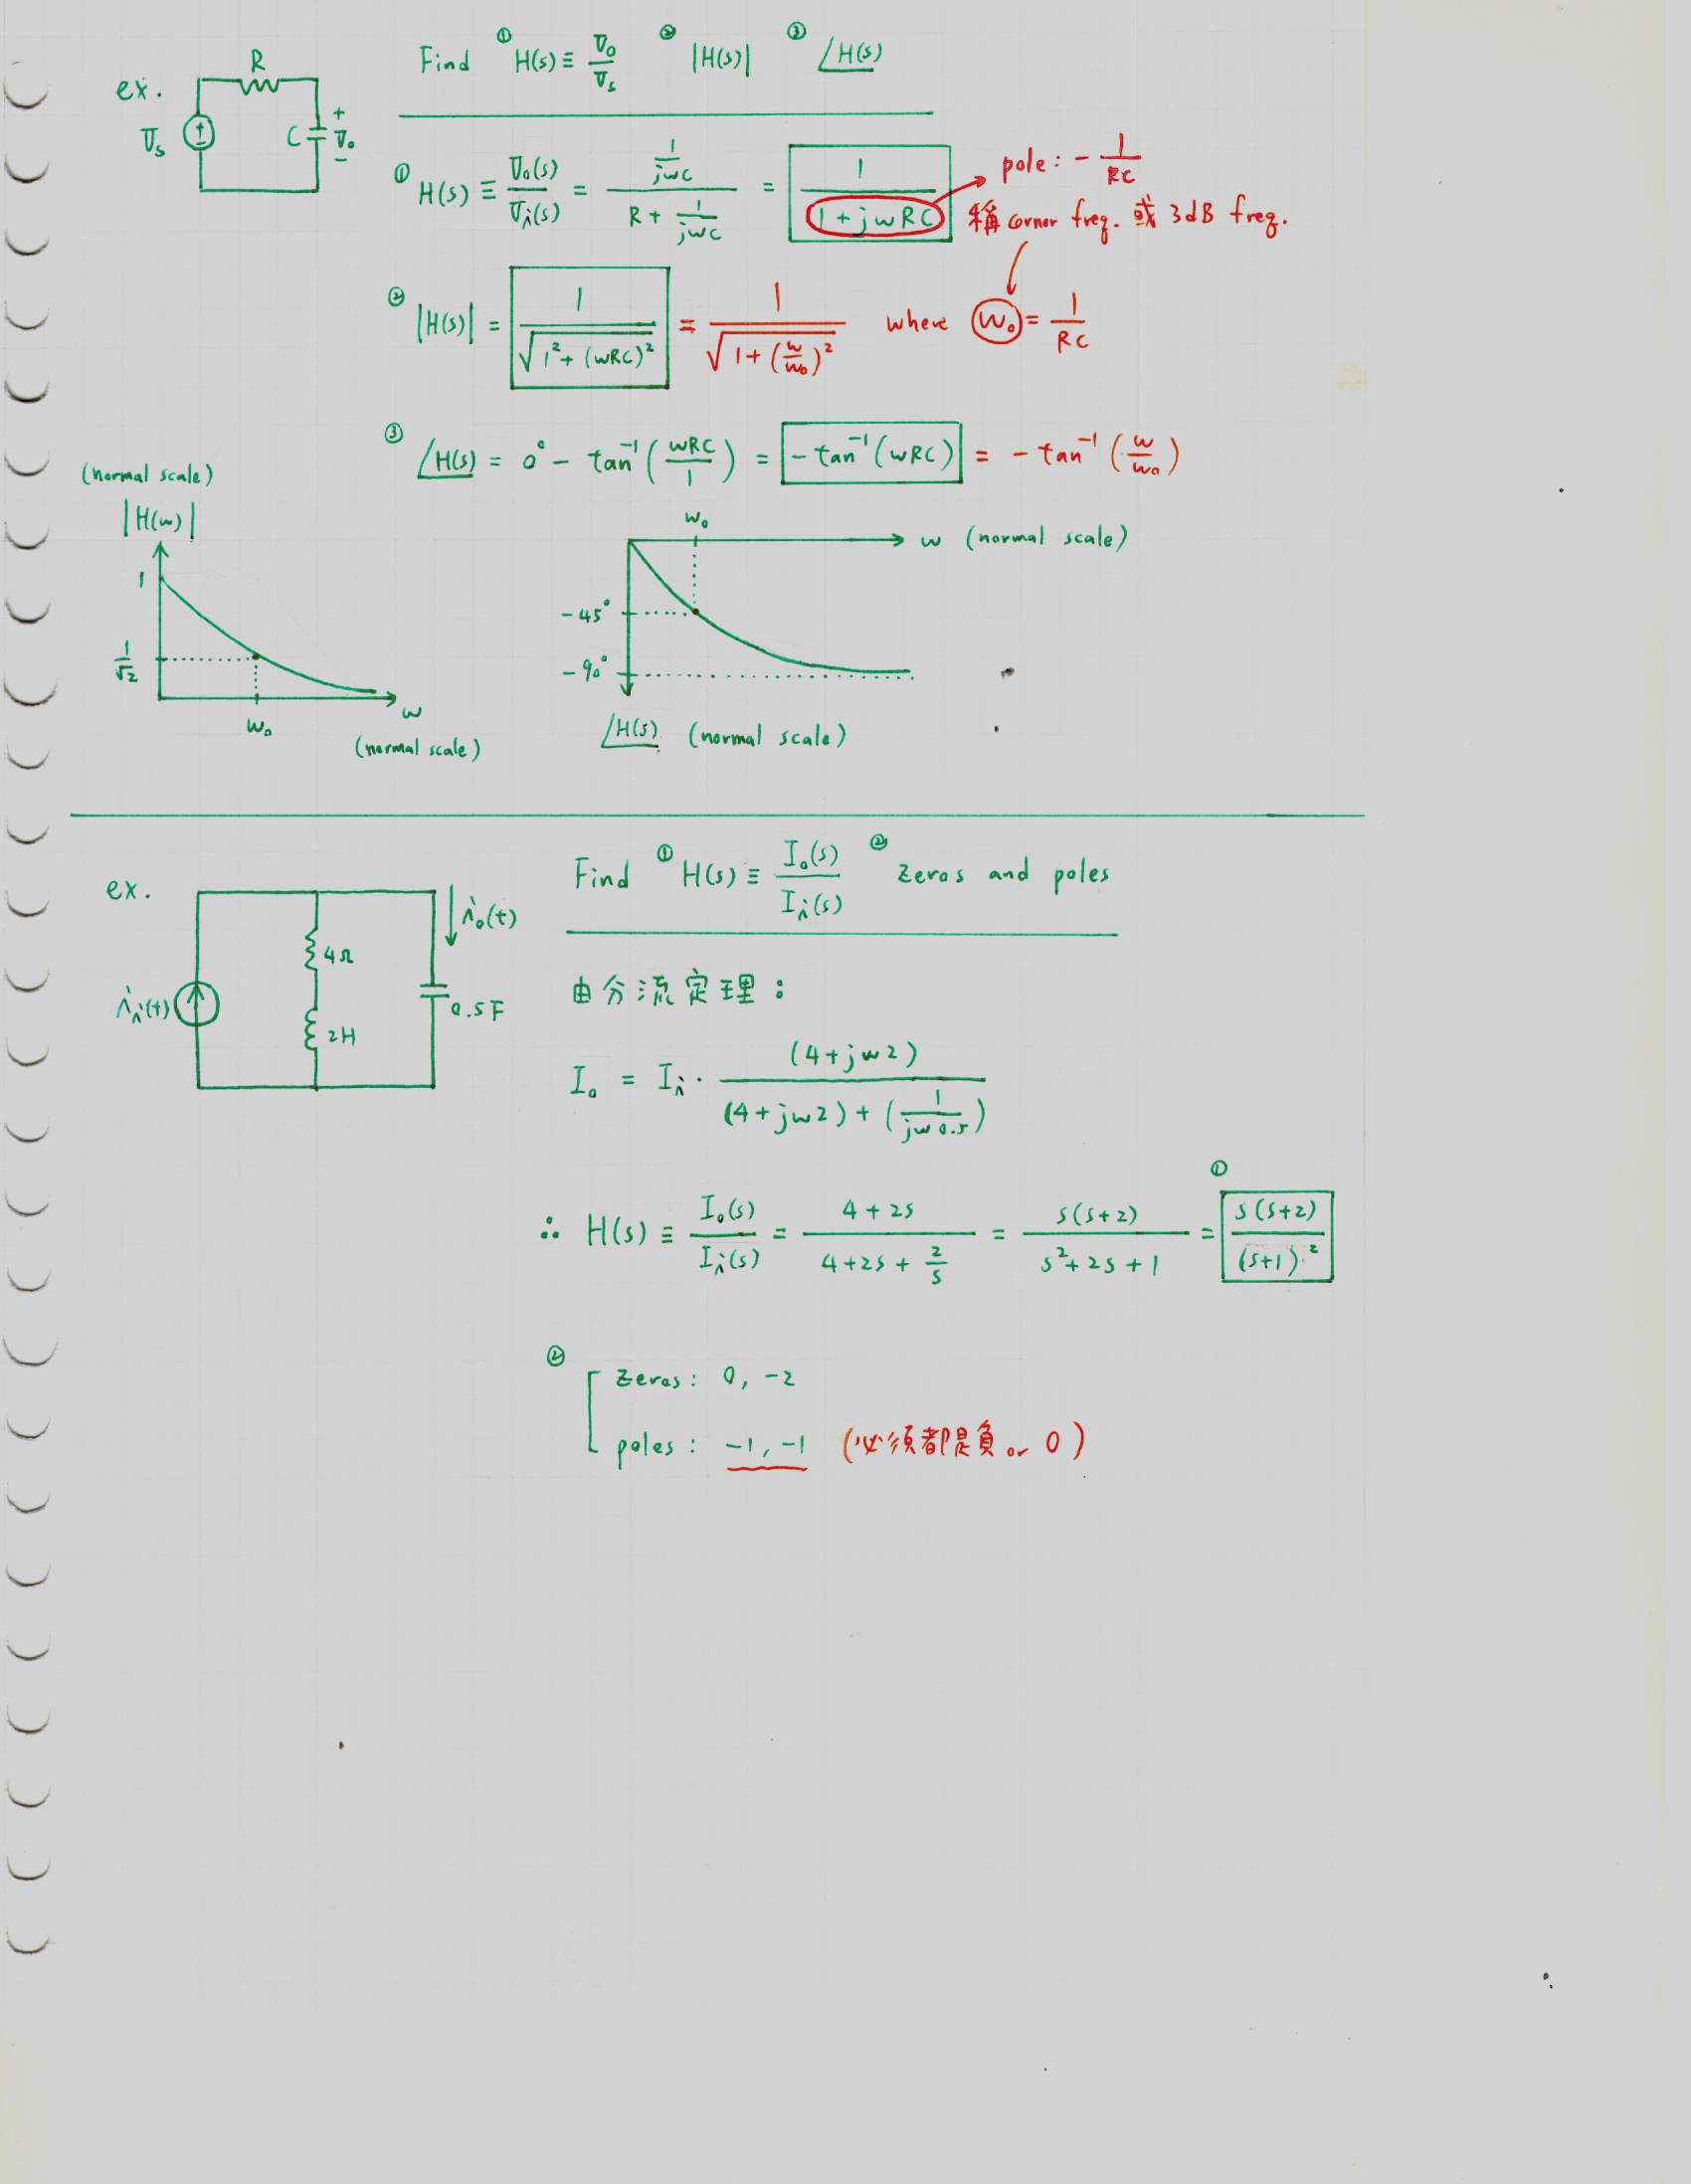 ex.
R
V̄s
C
+
V̄o
−
Find ① H(s) ≡ V̄o / V̄s ② |H(s)| ③ ∠H(s)
① H(s) ≡ V̄o(s) / V̄i(s) = (1/jwC) / (R + 1/jwC) = 1 / (1 + jwRC)
pole: − 1/RC
稱 corner freq. 或 3dB freq.
② |H(s)| = 1 / √(1² + (wRC)²) = 1 / √(1 + (w/w₀)²) where w₀ = 1/RC
③ ∠H(s) = 0° − tan⁻¹(wRC/1) = − tan⁻¹(wRC) = − tan⁻¹(w/w₀)
(normal scale)
|H(w)|
1
1/√2
w₀
w
(normal scale)
w₀
w (normal scale)
−45°
−90°
∠H(s) (normal scale)
ex.
ii(t)
4Ω
2H
io(t)
0.5F
Find ① H(s) ≡ Io(s) / Ii(s) ② zeros and poles
由分流定理：
Io = Ii · (4 + jw2) / ((4 + jw2) + (1/jw0.5))
∴ H(s) ≡ Io(s) / Ii(s) = (4 + 2s) / (4 + 2s + 2/s) = s(s+2) / (s² + 2s + 1) = ① s(s+2) / (s+1)²
② zeros: 0, −2
poles: −1, −1 (必須都是負 or 0)